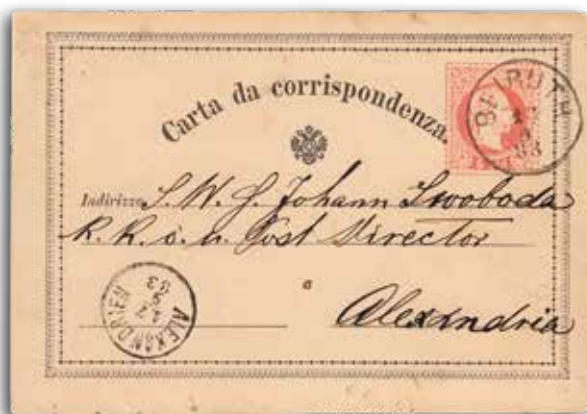 Carta da corrispondenza.
BEIRUTH
83
Indirizzo S. W. G. Johann Swoboda
K. K. ö. u. Post Director
a
Alexandria
ALEXANDRIEN
83